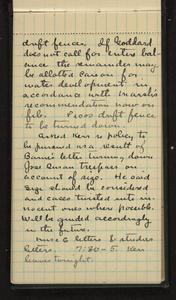 drift fence. If Goddard
does not call for entire bal-
ance the remainder may
be allotted Carson for
water development in
accordance with Marsh's
recommendation now on
file. P1000 drift fence
to be turned down.
Asked Kerr re policy to
be pursued as a result of
Barnes letter turning down
Jose Duran trespass on
account of size. He said
size should be considered
and cases treated into in-
nocent ones where possible.
Will be guided accordingly
in the future.
letters &
letters. 7:30-5. Kerr
leaves tonight.